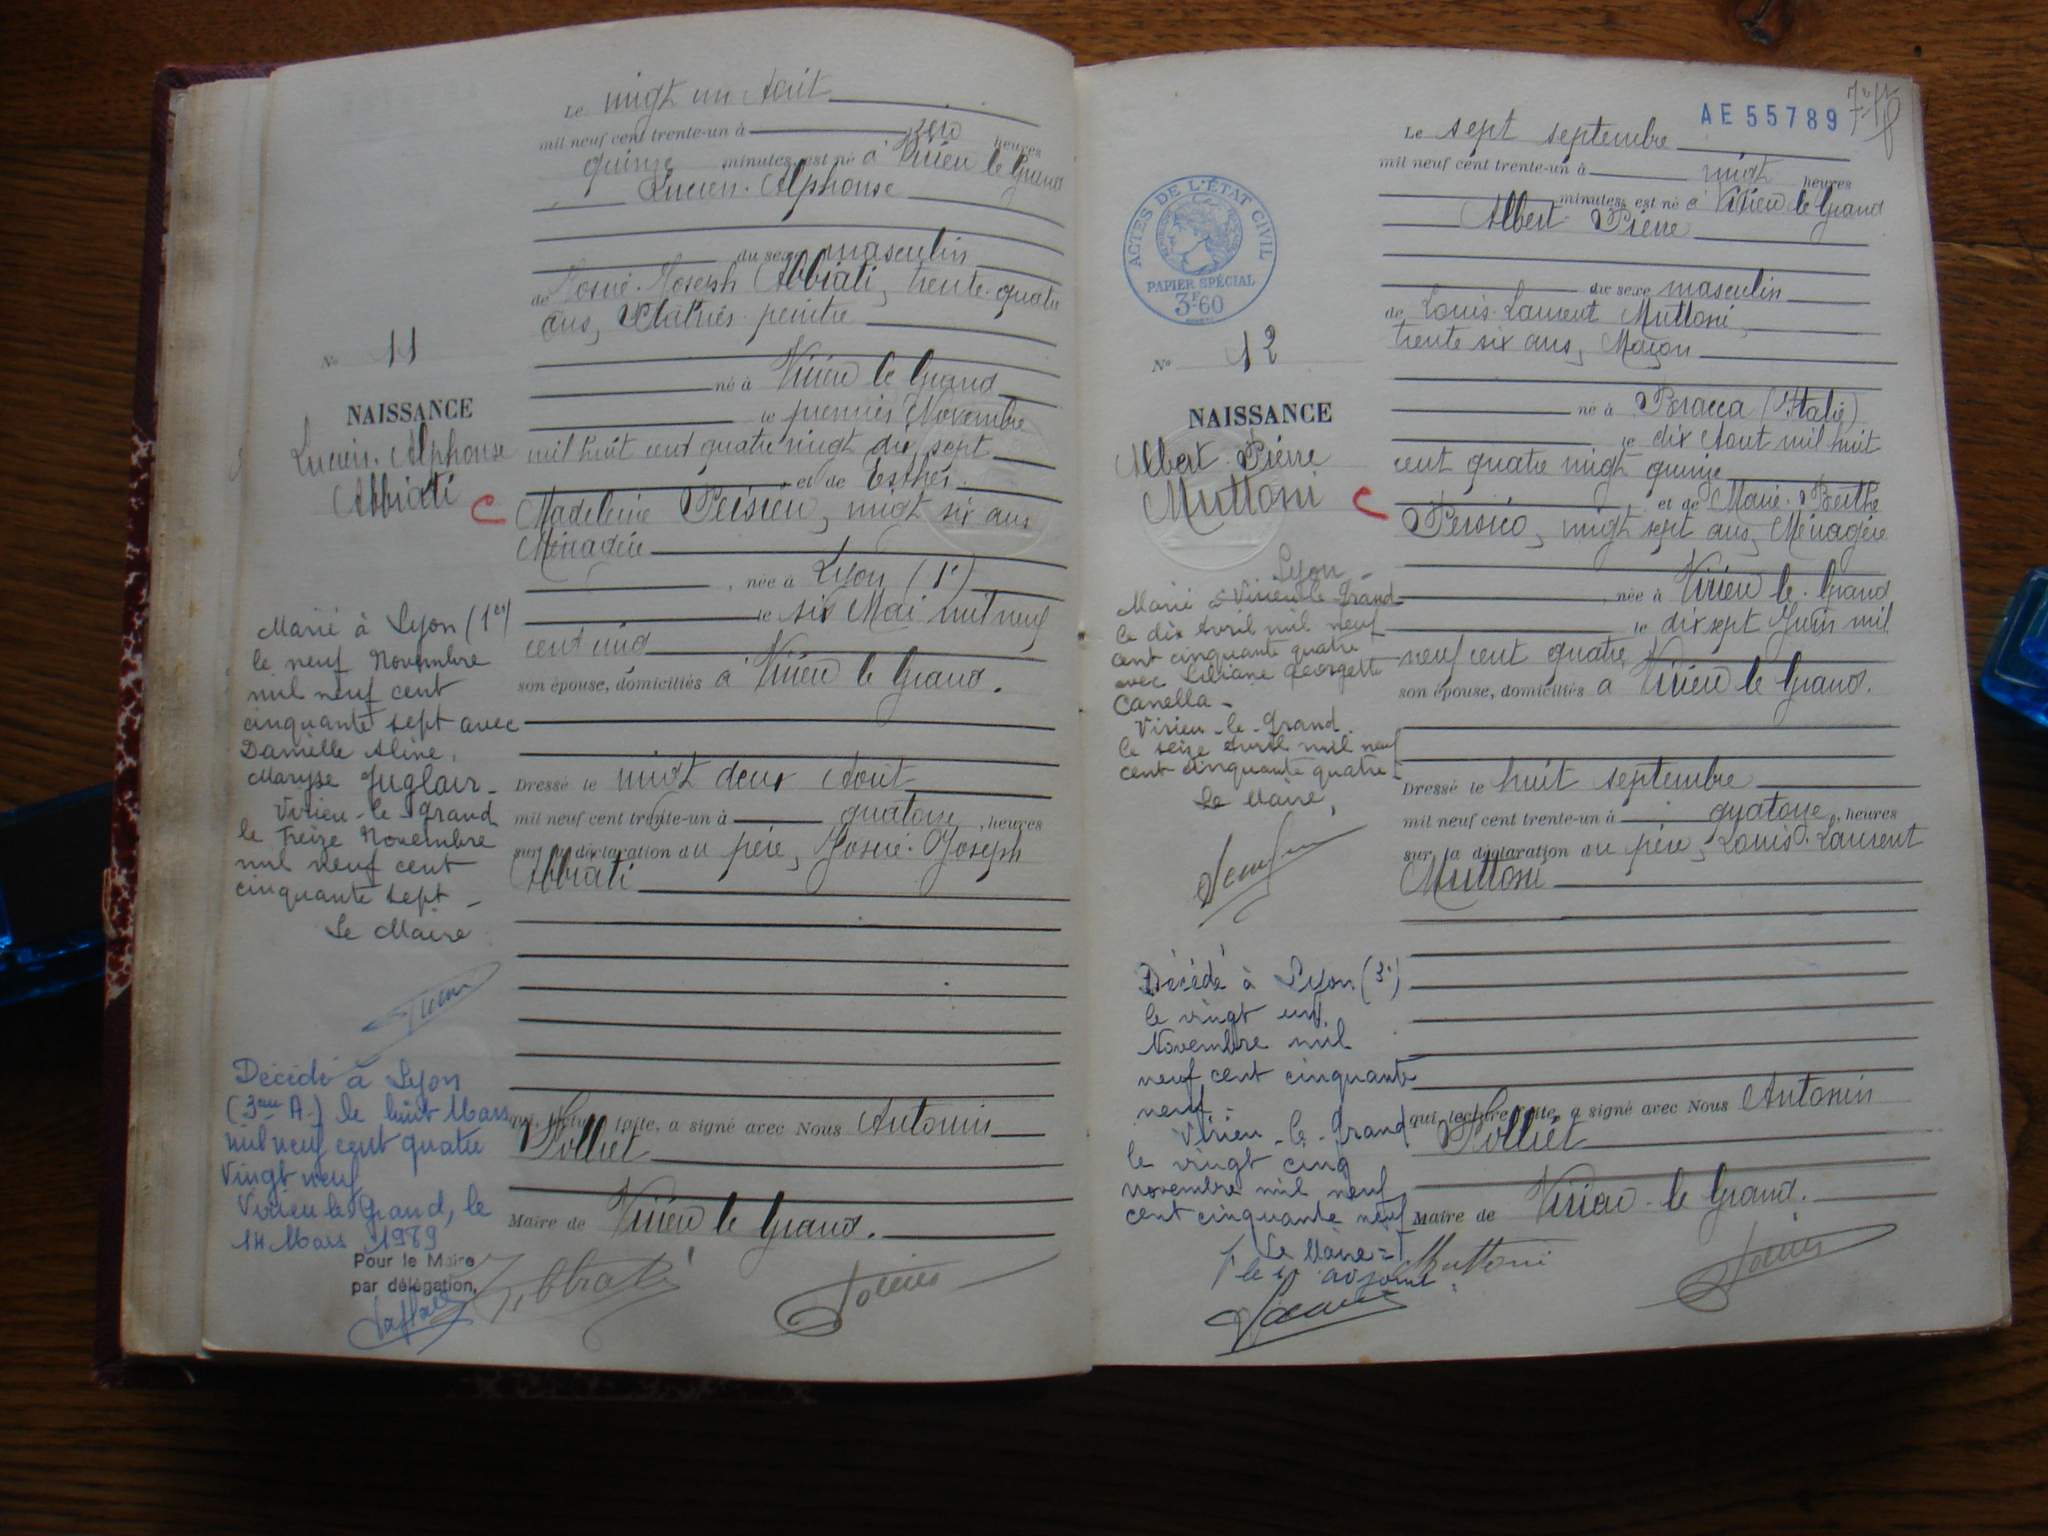 Le vingt un Août
mil neuf cent trente-un à zéro heures
quinze minutes, est né à Virieu le Grand
Lucien Alphonse
du sexe masculin
de Josué Joseph Abbiati, trente-quatre
ans, Plâtrier-peintre
né à Virieu le Grand
le premier Novembre
mil huit cent quatre vingt dix sept
et de Esther
Madeleine, vingt six ans
Ménagère
, née à Lyon (1e)
le six Mai mil neuf
cent cinq
son épouse, domiciliés à Virieu le Grand.
Dressé le vingt deux Août
mil neuf cent trente-un à quatorze, heures
sur la déclaration du père, Josué-Joseph
Abbiati
qui, lecture faite, a signé avec Nous Antonin
Polliet
Maire de Virieu le Grand.
No 11
NAISSANCE
Lucien-Alphonse
Abbiati
C
Marié à Lyon (1er)
le neuf Novembre
mil neuf cent
cinquante sept avec
Danielle Aline,
Maryse Juglair-
Virieu-le-Grand
le treize Novembre
mil neuf cent
cinquante sept -
Le Maire
Décédé à Lyon
(3ème A.) le huit Mars
mil neuf cent quatre
vingt neuf
Virieu le Grand, le
14 Mars 1989
Pour le Maire
par délégation,
Abbiati
AE 55789
Le sept septembre
mil neuf cent trente-un à vingt heures
minutes, est né à Virieu le Grand
Albert Pierre
du sexe masculin
de Louis-Laurent Muttoni,
trente six ans, Maçon
né à Bracca (Italie)
le dix Août mil huit
cent quatre vingt quinze
et de Marie-Berthe
Persico, vingt sept ans, Ménagère
, née à Virieu-le-Grand
le dix sept Juin mil
neuf cent quatre
son épouse, domiciliés à Virieu le Grand.
Dressé le huit septembre
mil neuf cent trente-un à quatorze, heures
sur la déclaration du père, Louis-Laurent
Muttoni
qui, lecture faite, a signé avec Nous Antonin
Polliet
Maire de Virieu-le Grand.
ACTES DE L'ÉTAT CIVIL
PAPIER SPÉCIAL
3F60
No 12
NAISSANCE
Albert-Pierre
Muttoni
C
Lyon -
Marié à Virieu le Grand
le dix Avril mil neuf
cent cinquante quatre
avec Liliane Georgette
Canella -
Virieu-le-Grand
le seize Avril mil neuf
cent cinquante quatre -
Le Maire,
Décédé à Lyon (3e)
le vingt un
Novembre mil
neuf cent cinquante
neuf -
Virieu-le-Grand
le vingt cinq
novembre mil neuf
cent cinquante neuf
Le Maire
Muttoni